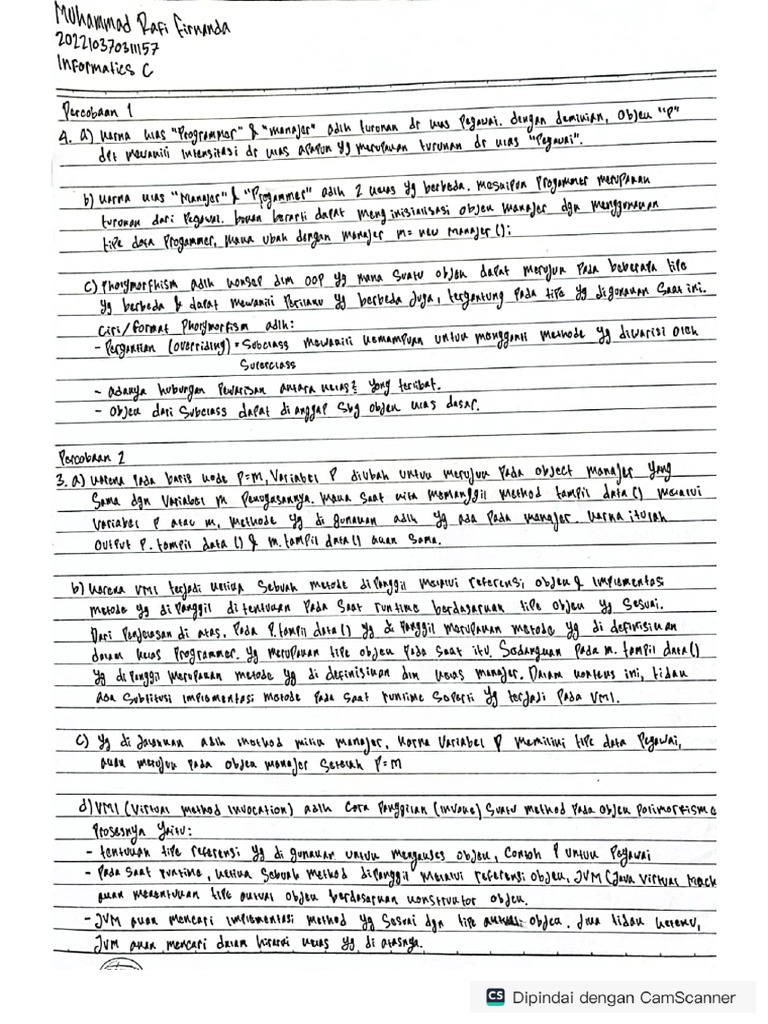 Muhammad Rafi Firnanda
202210370311157
Informatics C
Percobaan 1
4. a) karna kelas "Programmer" & "manajer" adlh turunan dr kelas Pegawai. dengan demikian, Objek "P"
dpt mewakili intensitasi dr kelas apapun yg merupakan turunan dr kelas "Pegawai".
b) karna kelas "Manajer" & "Progammer" adlh 2 kelas yg berbeda. meskipun Progammer merupakan
turunan dari Pegawai. bukan berarti dapat menginisialisasi objek manajer dgn menggunakan
tipe data Progammer, maka ubah dengan manajer m= new manajer ();
c) Pholymorfhism adlh konsep dlm OOP yg mana suatu objek dapat merujuk Pada beberapa tipe
yg berbeda & dapat mewakili Perilaku yg berbeda Juga, tergantung Pada tipe yg digunakan saat ini.
Ciri/format Pholymorfism adlh:
- Pergantian (overriding) = Subclass mewakili kemampuan untuk mengganti methode yg diwarisi oleh
Superclass
- adanya hubungan Pewarisan antara kelas² yang terlibat.
- Objek dari Subclass dapat di anggap sbg objek kelas dasar.
Percobaan 2
3. a) karena Pada baris kode P=M, Variabel P diubah untuk merujuk Pada object manajer yang
Sama dgn Variabel m Penugasannya. Maka saat kita memanggil method tampil data () melalui
Variabel P atau m, methode yg di gunakan adlh yg ada Pada manajer. karna itulah
Output P. tampil data () & m. tampil data () akan sama.
b) karena VMI terjadi ketika Sebuah metode di Panggil melalui referensi objek & implementasi
metode yg di Panggil di tentukan Pada Saat runtime berdasarkan tipe objek yg Sesuai.
Dari Penjelasan di atas, Pada P. tampil data () yg di Panggil merupakan metode yg di definisikan
dalam kelas Programmer. yg merupakan tipe objek Pada saat itu. Sedangkan Pada m. tampil data()
yg di Panggil merupakan metode yg di definisikan dlm kelas manajer. Dalam konteks ini, tidak
ada Sublitusi implementasi metode Pada saat runtime Seperti yg terjadi Pada VMI.
c) yg di Jalankan adlh method milik manajer, karna Variabel P memiliki tipe data Pegawai,
akan merujuk Pada objek manajer Setelah P=M
d) VMI (Virtual method invocation) adlh Cara Panggilan (invoke) Suatu method Pada objek Polimorfisme
Prosesnya yaitu:
- tentukan tipe referensi yg di gunakan untuk mengakses objek, Contoh P untuk Pegawai
- Pada saat runtime, ketika Sebuah method dipanggil melalui referensi objek, JVM (Java Virtual Mach
akan menentukan tipe aktual objek berdasarkan konstruktor objek.
- JVM akan mencari implementasi method yg sesuai dgn tipe aktual objek. Jika tidak ketemu,
JVM akan mencari dalam hirarki kelas yg di atasnya.
CS Dipindai dengan CamScanner